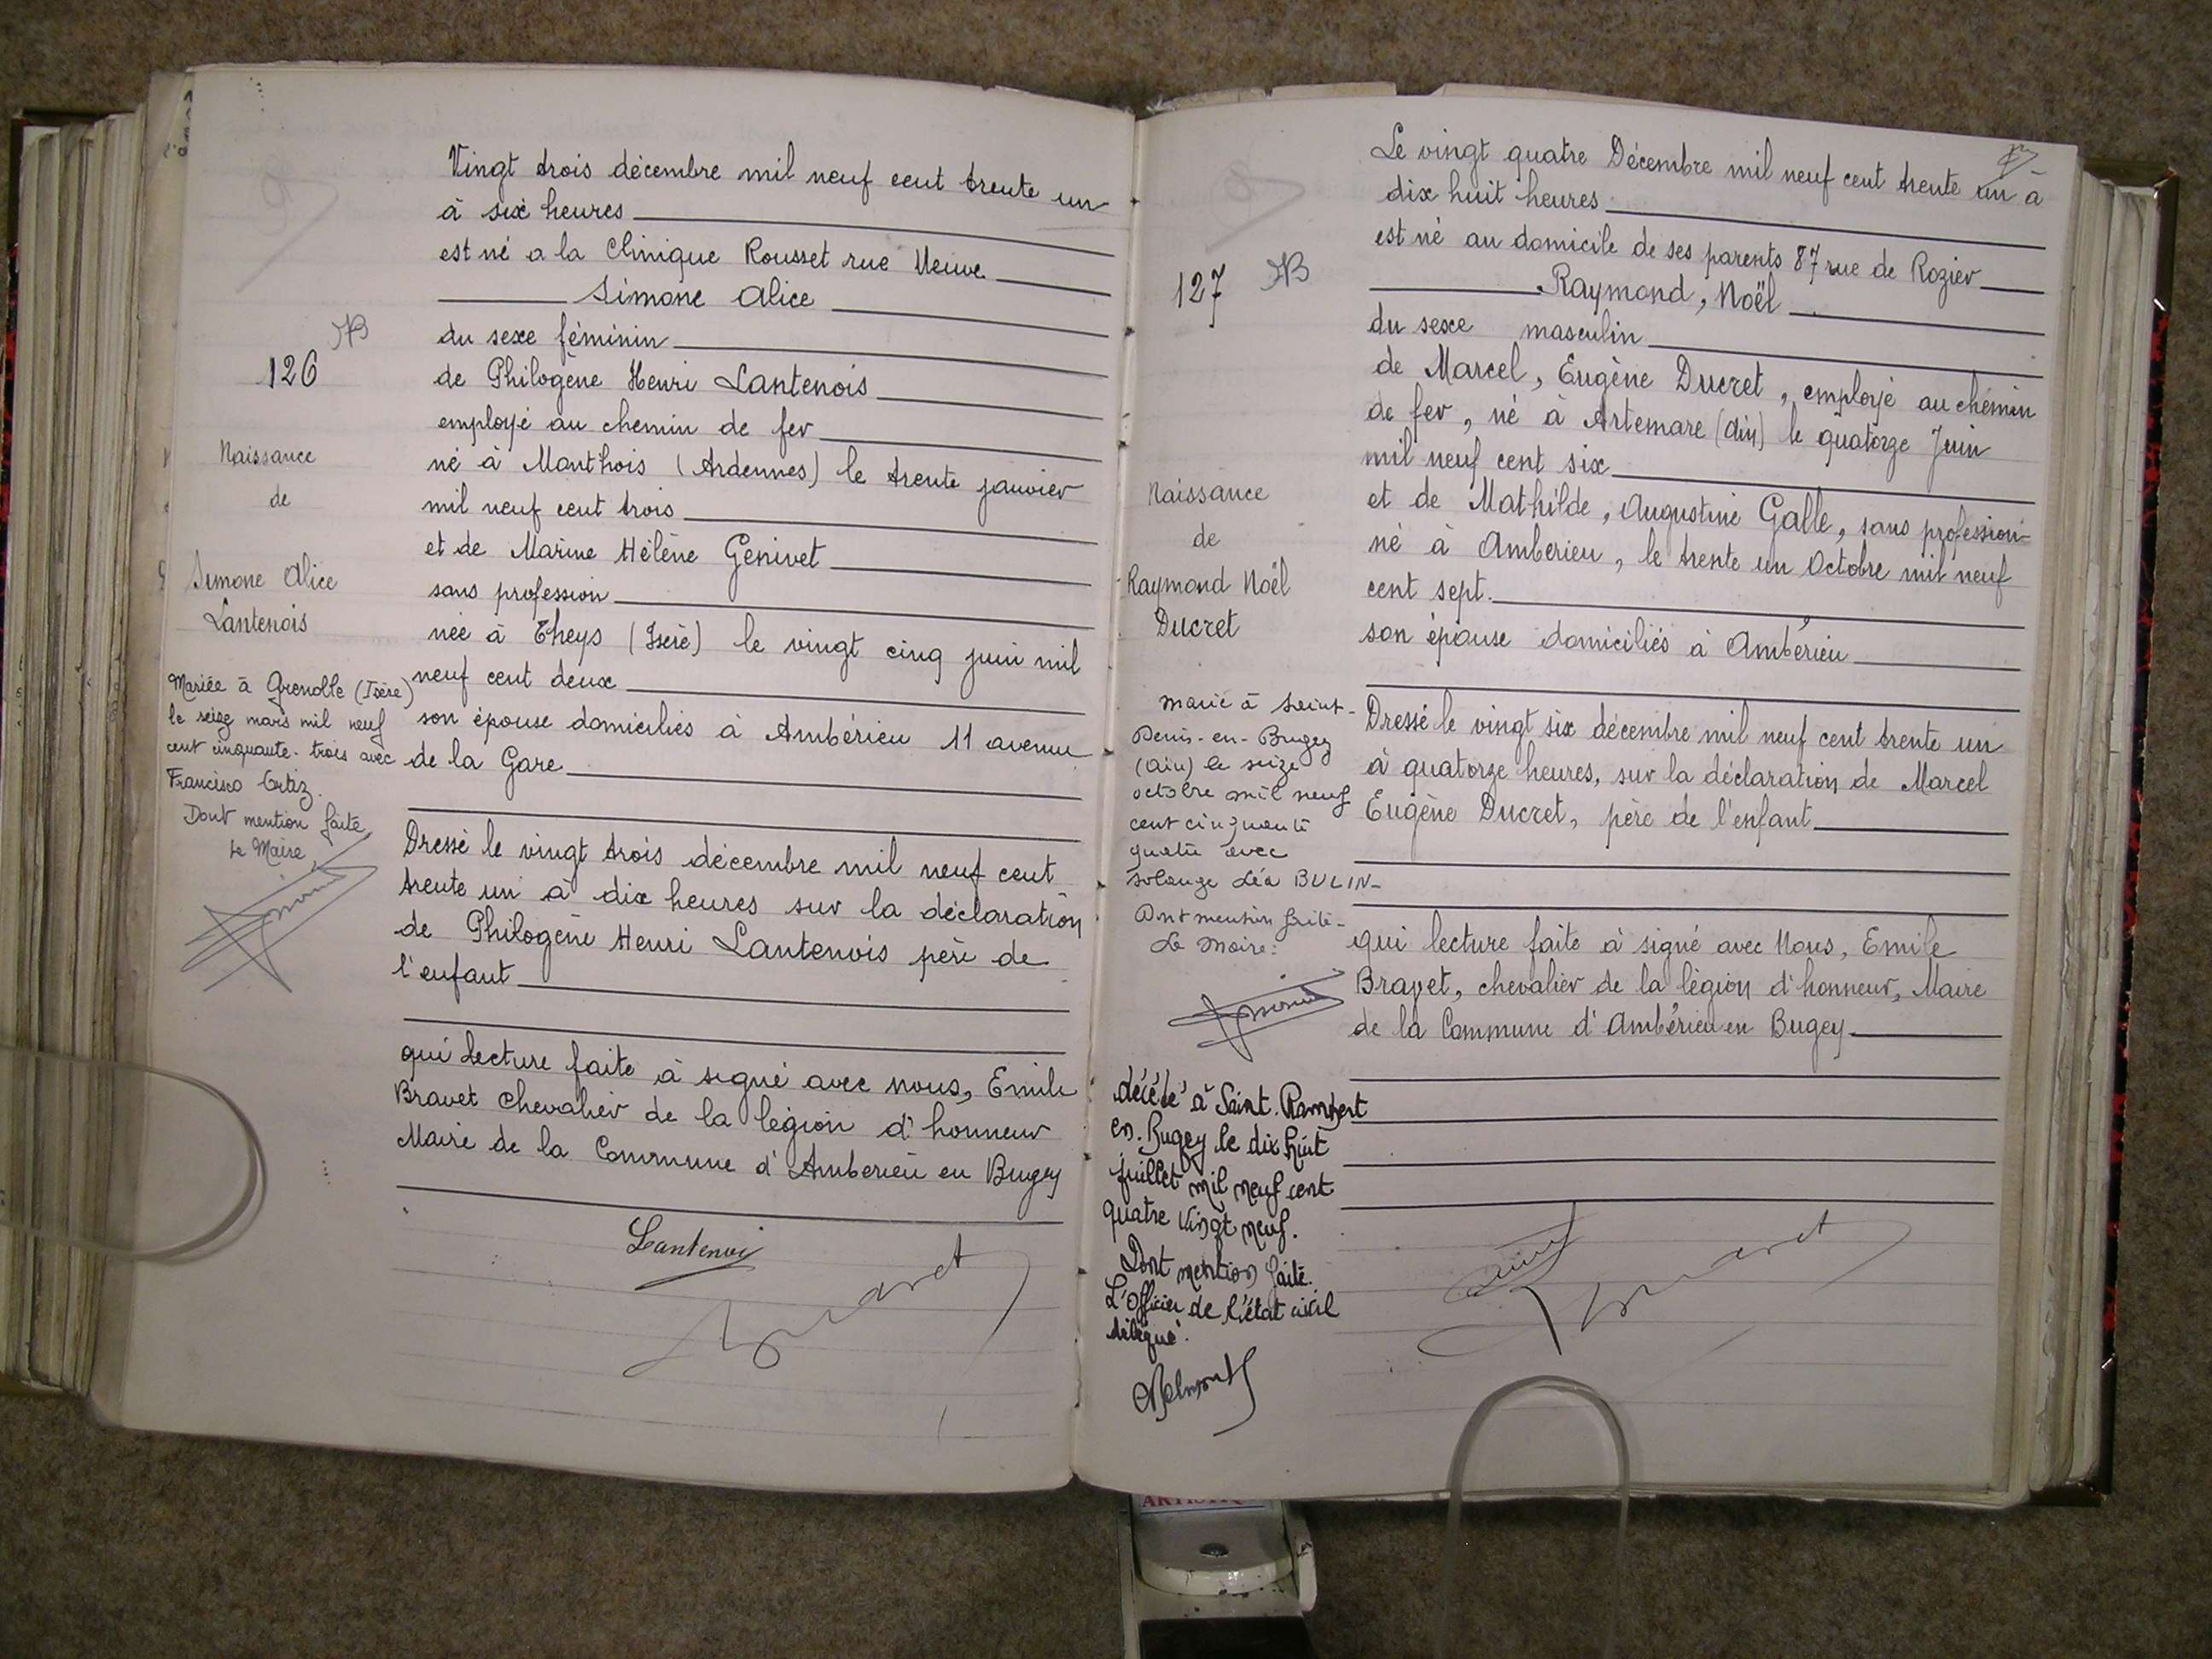 126
NB
Naissance
de
Simone Alice
Lantenois
Mariée à Grenoble (Isère)
le seize mars mil neuf
cent cinquante-trois avec
Francisco Ortiz.
Dont mention faite
Le Maire,
Vingt trois décembre mil neuf cent trente un
à six heures
est né a la Clinique Rousset rue Neuve
Simone Alice
du sexe féminin
de Philogène Henri Lantenois
employé au chemin de fer
né à Monthois (Ardennes) le trente janvier
mil neuf cent trois
et de Marine Hélène Genivet
sans profession
née à Theys (Isère) le vingt cinq juin mil
neuf cent deux
son épouse domiciliés à Ambérieu 11 avenue
de la Gare
Dressé le vingt trois décembre mil neuf cent
trente un à dix heures sur la déclaration
de Philogène Henri Lantenois père de
l'enfant
qui lecture faite à signé avec nous, Emile
Bravet Chevalier de la légion d'honneur
Maire de la Commune d'Ambérieu en Bugey
Lantenois
Bravet
127
NB
Naissance
de
Raymond Noël
Ducret
marié à Saint-
Denis-en-Bugey
(Ain) le seize
octobre mil neuf
cent cinquante
quatre avec
Solange Léa BULIN-
Dont mention faite-
Le Maire:
décédé à Saint.Rambert
en.Bugey le dix huit
juillet mil neuf cent
quatre vingt neuf.
Dont mention faite.
L'Officier de l'état civil
délégué.
Le vingt quatre Décembre mil neuf cent trente un à
dix huit heures
est né au domicile de ses parents 87 rue de Rozier
Raymond, Noël
du sexe masculin
de Marcel, Eugène Ducret, employé au chemin
de fer, né à Artemare (Ain) le quatorze Juin
mil neuf cent six
et de Mathilde, Augustine Galle, sans profession
né à Amberieu, le trente un Octobre mil neuf
cent sept.
son épouse domiciliés à Ambérieu
Dressé le vingt six décembre mil neuf cent trente un
à quatorze heures, sur la déclaration de Marcel
Eugène Ducret, père de l'enfant
qui lecture faite à signé avec Nous, Emile
Bravet, chevalier de la légion d'honneur, Maire
de la Commune d'Ambérieu en Bugey
Bravet